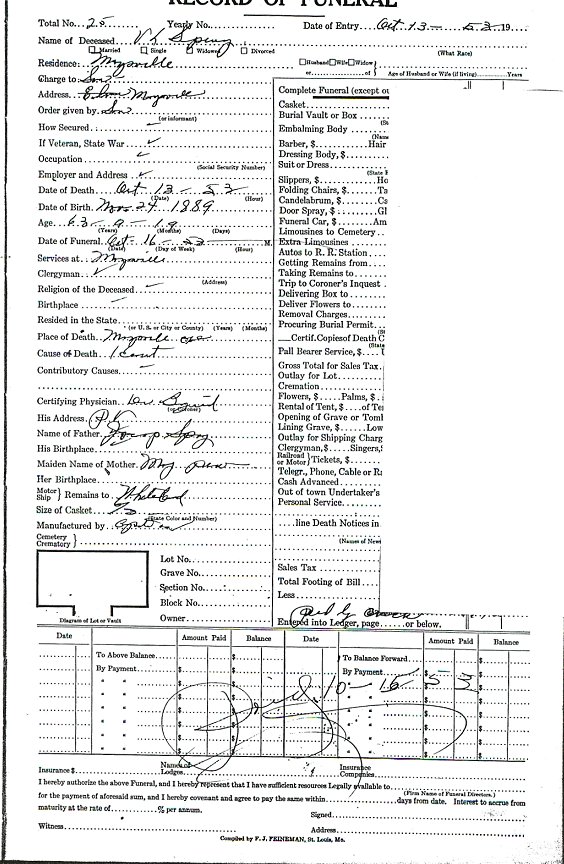 RECORD OF FUNERAL
Total No. 25 Yearly No. Date of Entry Oct 13 - 53 19
Name of Deceased
Married Single Widowed Divorced (What Race)
Residence: Maysville Husband Wife Widow
or of Age of Husband or Wife (if living) Years
Charge to Son
Complete Funeral (except ou
Address
Casket
Order given by Son
Burial Vault or Box
(or informant)
Embalming Body
How Secured
(Name
Barber, $ Hair
If Veteran, State War
Dressing Body, $
Suit or Dress
Occupation
(Social Security Number)
(State
Slippers, $ Ho
Employer and Address
Folding Chairs, $ Ta
Date of Death Oct 13 - 53
(Date) (Hour)
Candelabrum, $ Ca
Date of Birth Nov 24 1889
Door Spray, $ Gl
Funeral Car, $ Am
Age 63 - 9 - 19
(Years) (Months) (Days)
Limousines to Cemetery
Date of Funeral Oct 16 - 53 M.
(Date) (Day of Week) (Hour)
Extra Limousines
Autos to R. R. Station
Services at Maysville
Getting Remains from
Clergyman
Taking Remains to
(Address)
Trip to Coroner's Inquest
Religion of the Deceased
Delivering Box to
Birthplace
Deliver Flowers to
Removal Charges
Resided in the State
(or U. S. or City or County) (Years) (Months)
Procuring Burial Permit
Place of Death Maysville
Certif. Copies of Death C
(State
Cause of Death
Pall Bearer Service, $
Contributory Causes
Gross Total for Sales Tax
Outlay for Lot
Cremation
Certifying Physician
(or Coroner)
Flowers, $ Palms, $
Rental of Tent, $ of Te
His Address
Opening of Grave or Toml
Name of Father
Lining Grave, $ Low
Outlay for Shipping Charg
His Birthplace
Clergyman, $ Singers, $
Maiden Name of Mother
Railroad or Motor Tickets, $
Telegr., Phone, Cable or Ra
Her Birthplace
Cash Advanced
Motor Ship Remains to
Out of town Undertaker's
Size of Casket
(State Color and Number)
Personal Service
Manufactured by
line Death Notices in
Cemetery
Crematory
(Names of News
Lot No.
Grave No.
Section No.
Sales Tax
Total Footing of Bill
Block No.
Less
Diagram of Lot or Vault
Owner
Paid by
Entered into Ledger, page or below.
Date Amount Paid Balance Date Amount Paid Balance
To Above Balance $ $ To Balance Forward
By Payment $ $ By Payment $ $
Paid 10 - 15 53
Insurance $ Names of Lodges Insurance Companies
I hereby authorize the above Funeral, and I hereby represent that I have sufficient resources Legally available to
(Firm Name of Funeral Directors.)
for the payment of aforesaid sum, and I hereby covenant and agree to pay the same within days from date. Interest to accrue from
maturity at the rate of % per annum.
Signed
Witness Address
Compiled by F. J. FEINEMAN, St. Louis, Mo.